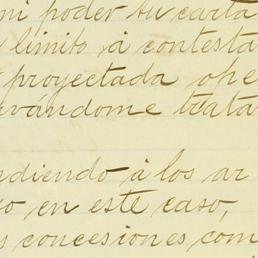 mi poder su carta
limito á contesta
proyectada ope
vándome trata
diendo á los ar
o en este caso,
s concesiones com